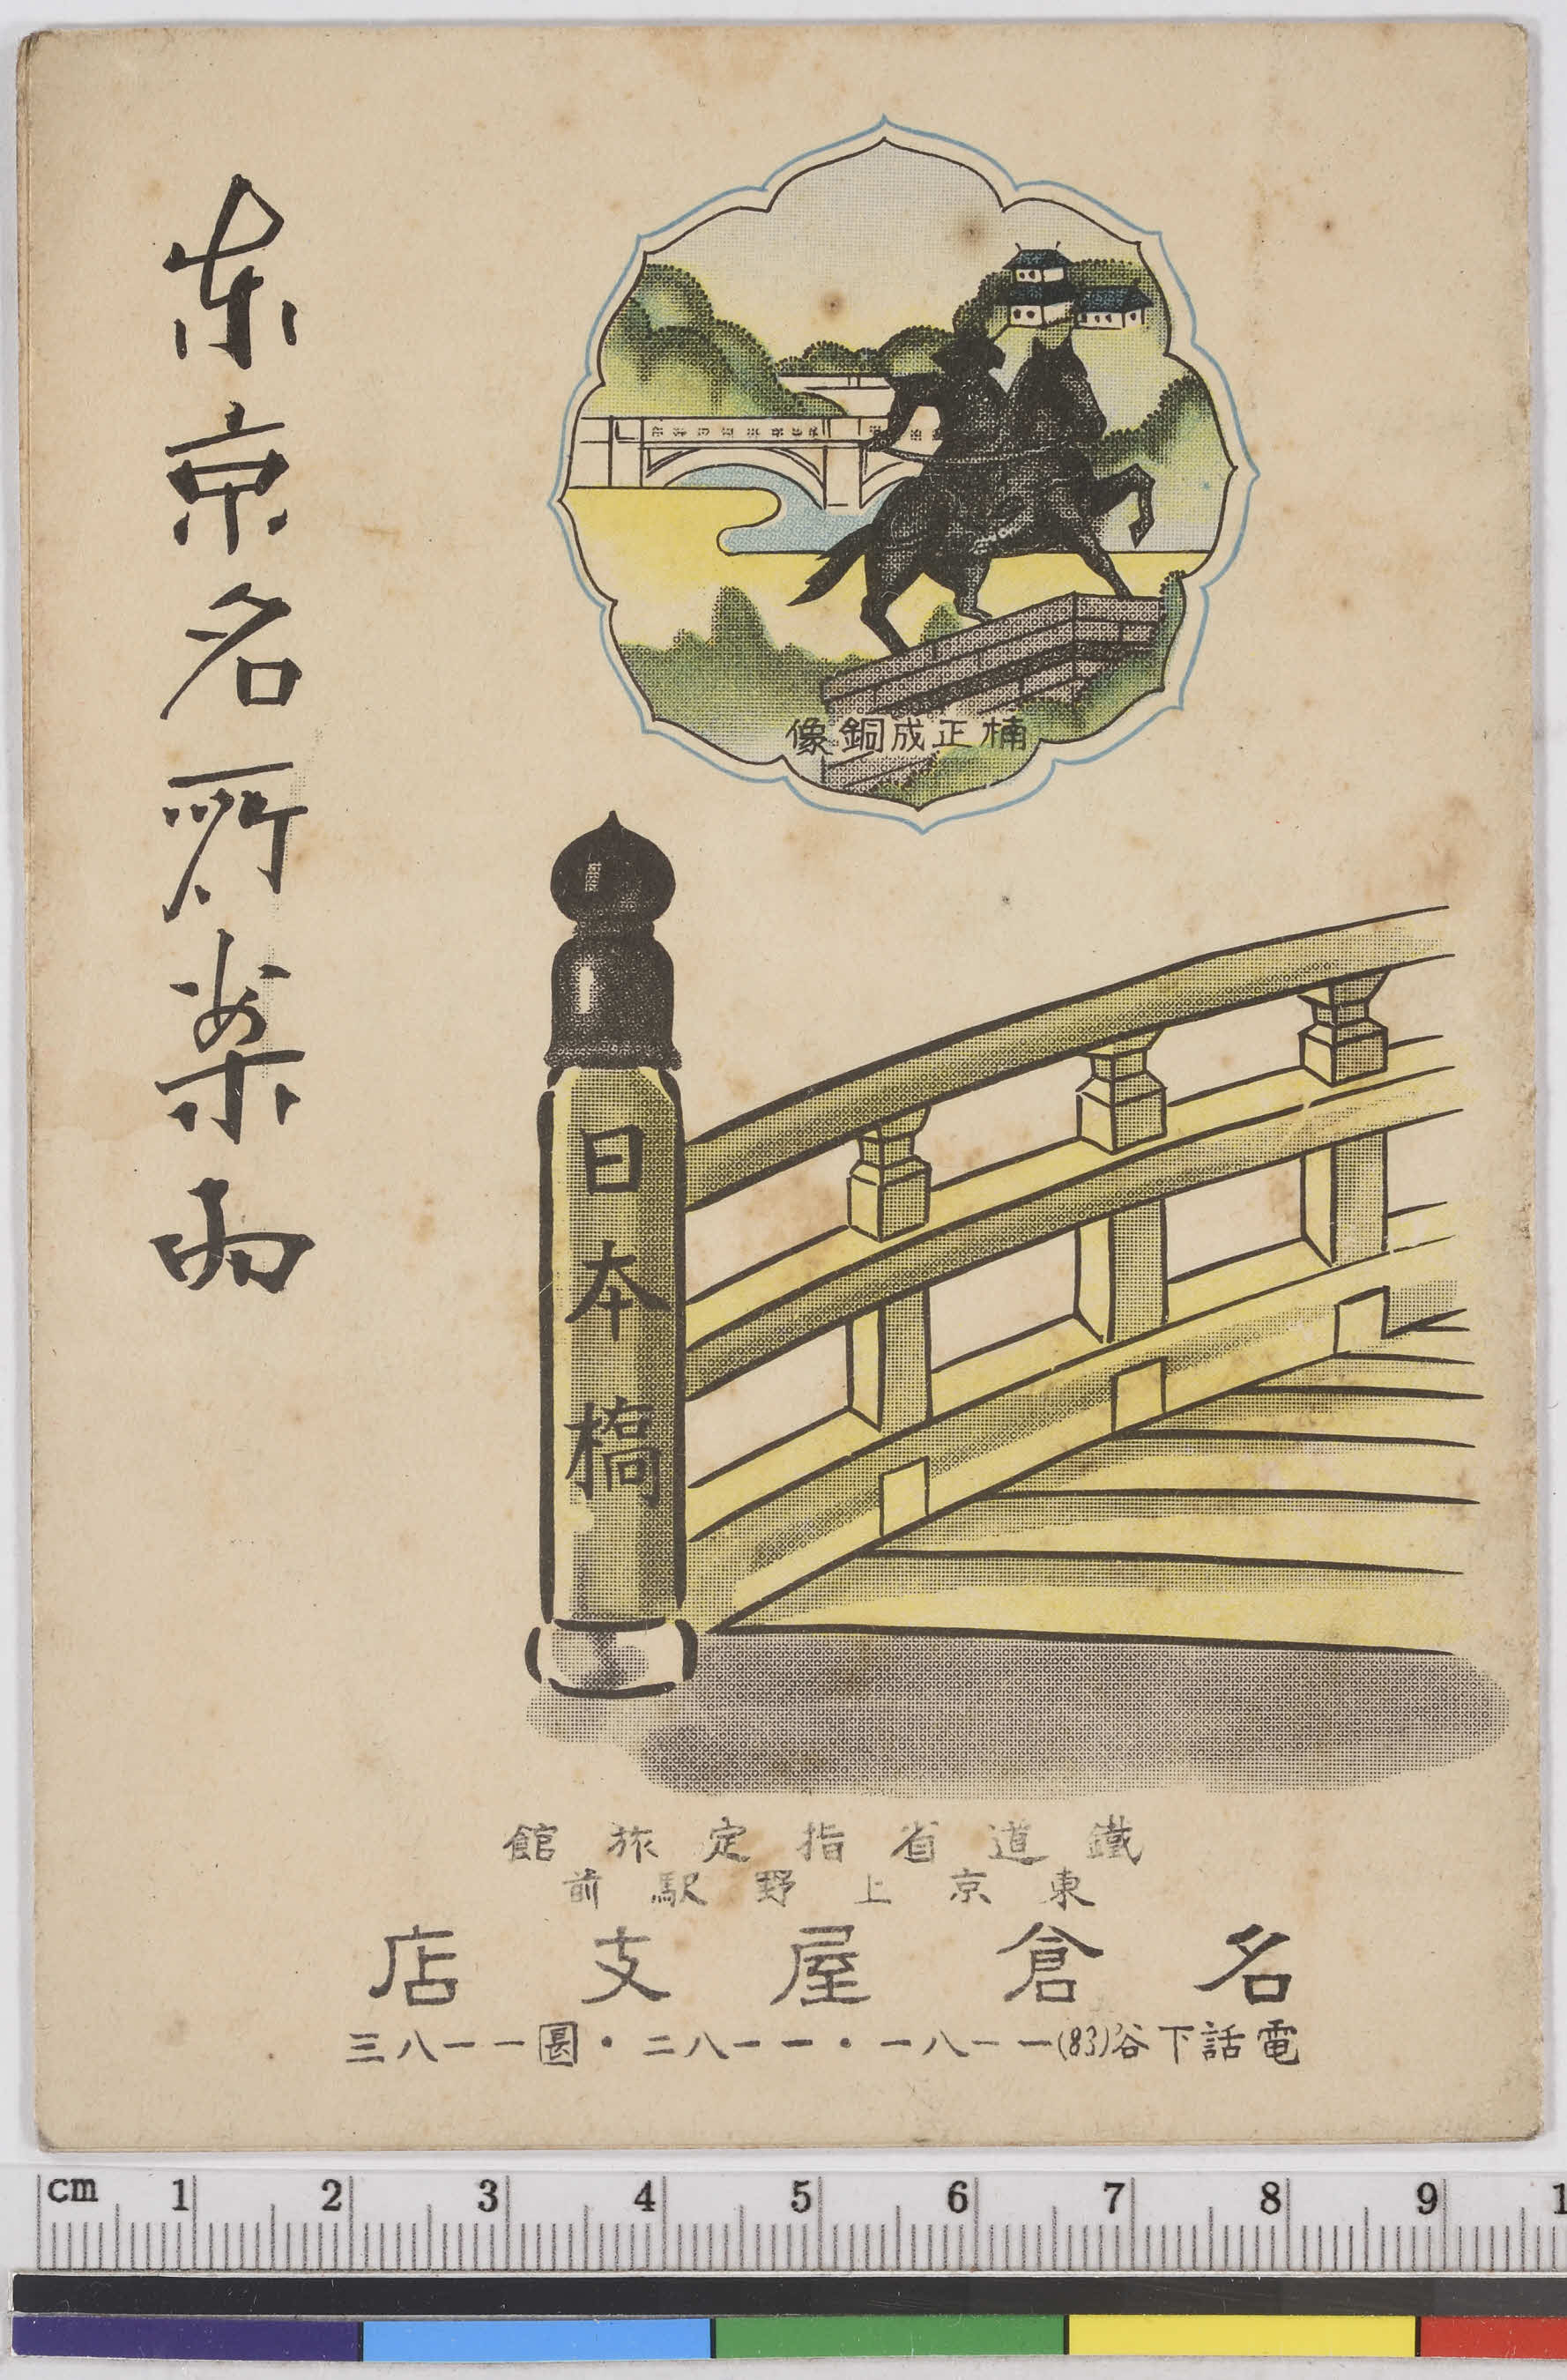 東京名所案内
楠正成銅像
日本橋
鐵道省指定旅館
東京上野駅前
名倉屋支店
電話下谷(83)一一八一・一一八二・一一八三
cm 1 2 3 4 5 6 7 8 9 1